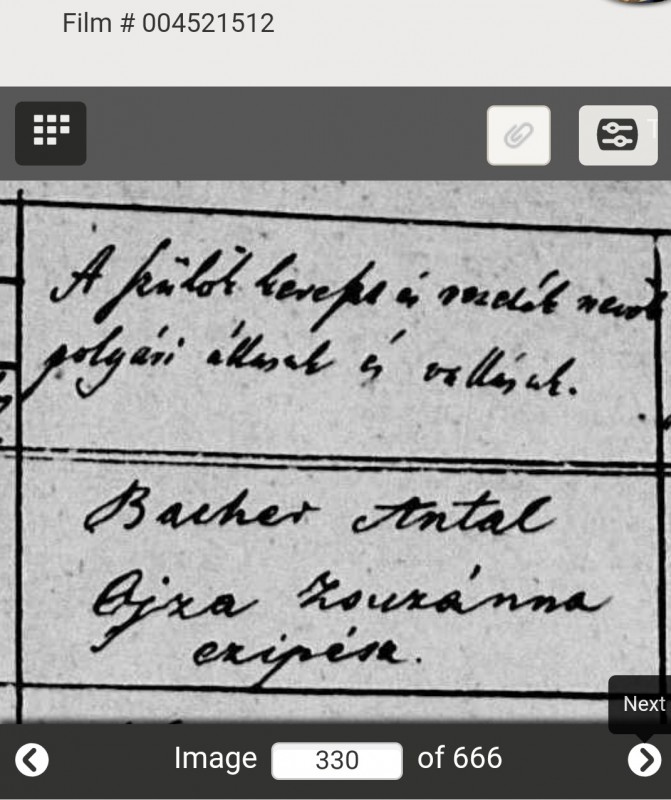 Film # 004521512
A szülők kereszt és vezeték nevök
polgári állásuk és vallásuk.
Bacher Antal
Ojza Zsuzánna
czipész.
Next
Image 330 of 666